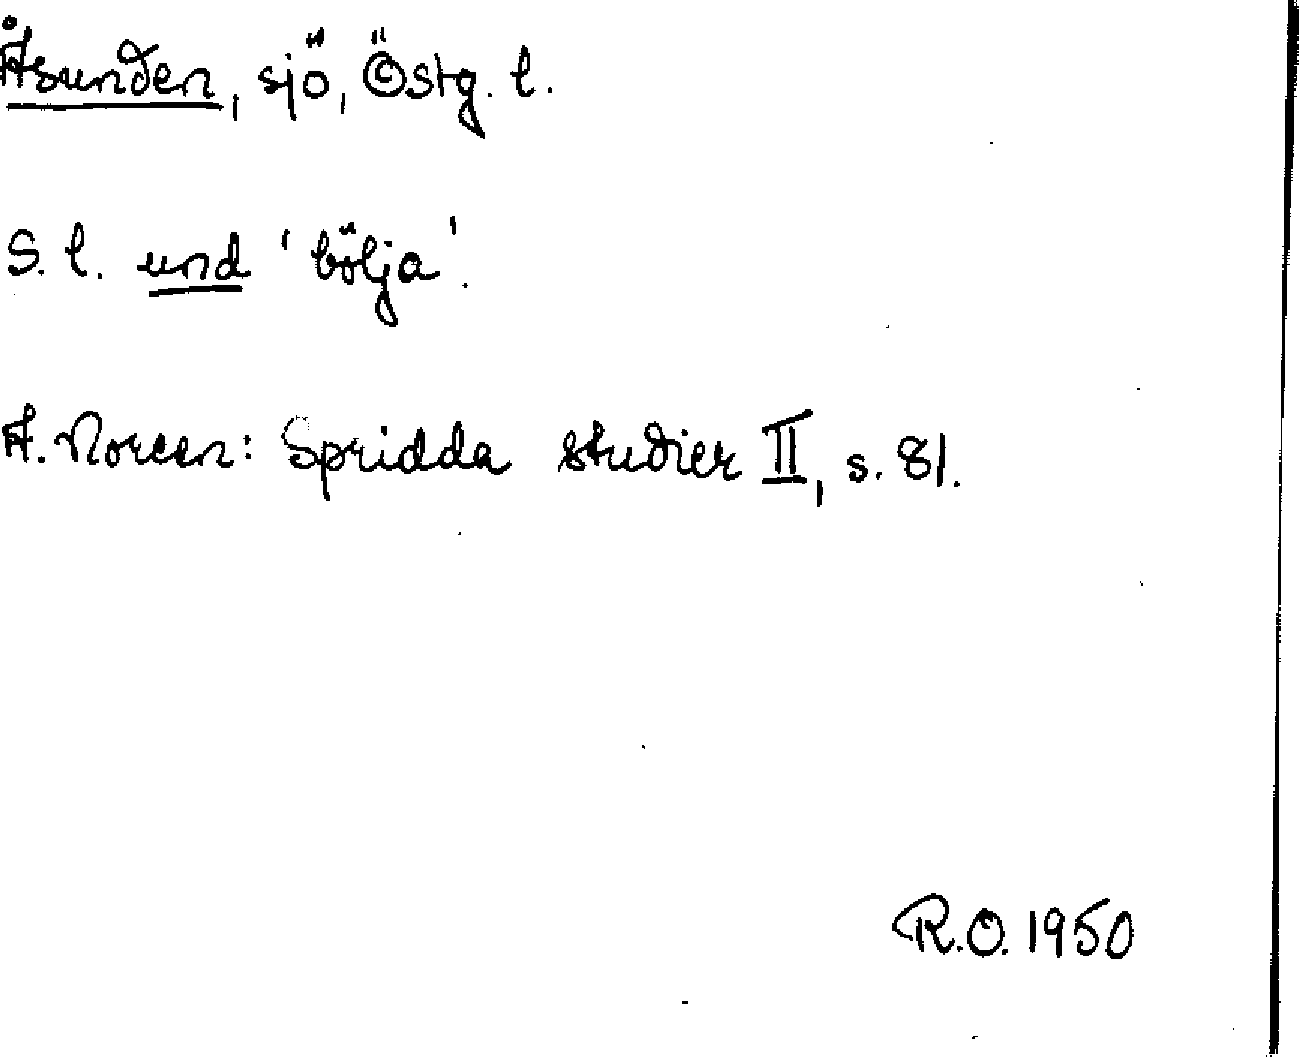 Åsunden, sjö, Östg. l.
S. l. und 'bölja'.
A. Noreen: Spridda studier II, s. 81.
R.O. 1950